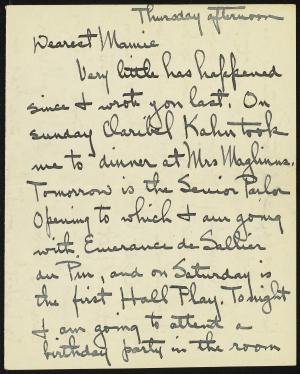 Thursday afternoon
Dearest Mamie
Very little has happened
since I wrote you last. On
sunday Claribel Kahn took
me to dinner at Mrs Maginnis.
Tomorrow is the Senior Parlor
Opening to which I am going
with Emerance de Sallier
du Pin, and on Saturday is
the first Hall Play. Tonight
I am going to attent a
birthday party in the room